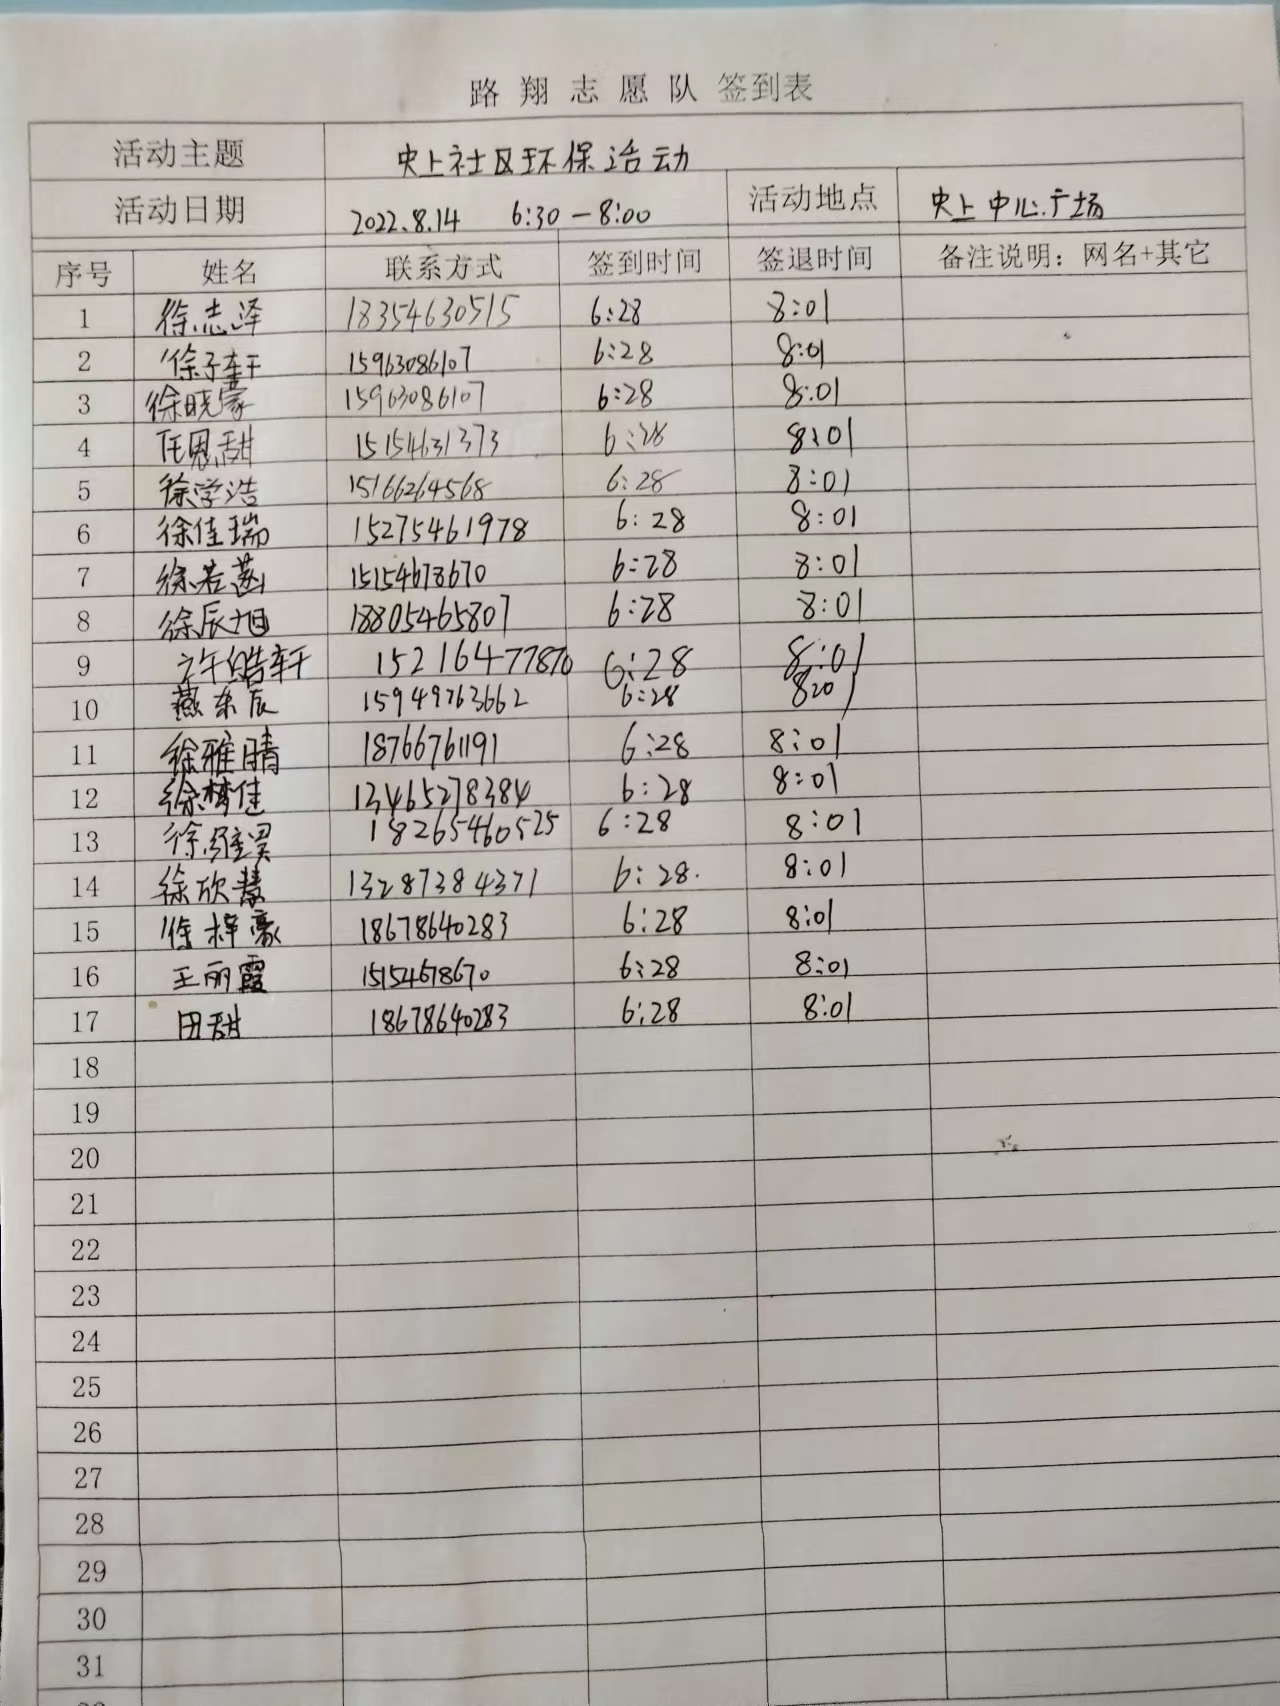 路翔志愿队 签到表
活动主题 史上社区环保活动
活动日期 2022.8.14 6:30-8:00 活动地点 史上中心广场
序号 姓名 联系方式 签到时间 签退时间 备注说明：网名+其它
1 徐志泽 18354630515 6:28 8:01
2 徐子轩 15963086107 6:28 8:01
3 徐晓蒙 15963086107 6:28 8:01
4 任恩甜 15154631373 6:28 8:01
5 徐学浩 15166264568 6:28 8:01
6 徐佳瑞 15275461978 6:28 8:01
7 徐若菡 15154678670 6:28 8:01
8 徐辰旭 18805465807 6:28 8:01
9 许皓轩 15216477870 6:28 8:01
10 燕东辰 15949763662 6:28 8:01
11 徐雅晴 18766761191 6:28 8:01
12 徐梦佳 13465278384 6:28 8:01
13 徐 18265460525 6:28 8:01
14 徐欣慧 13287384371 6:28. 8:01
15 徐梓豪 18678640283 6:28 8:01
16 王丽霞 15154678670 6:28 8:01
17 田甜 18678640283 6:28 8:01
18
19
20
21
22
23
24
25
26
27
28
29
30
31